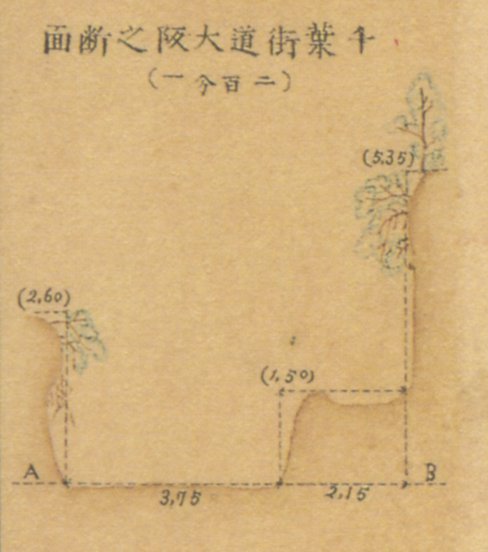 千葉街道大阪之断面
(二百分一)
(5,35)
(2,60)
(1,50)
A
B
3,75
2,15